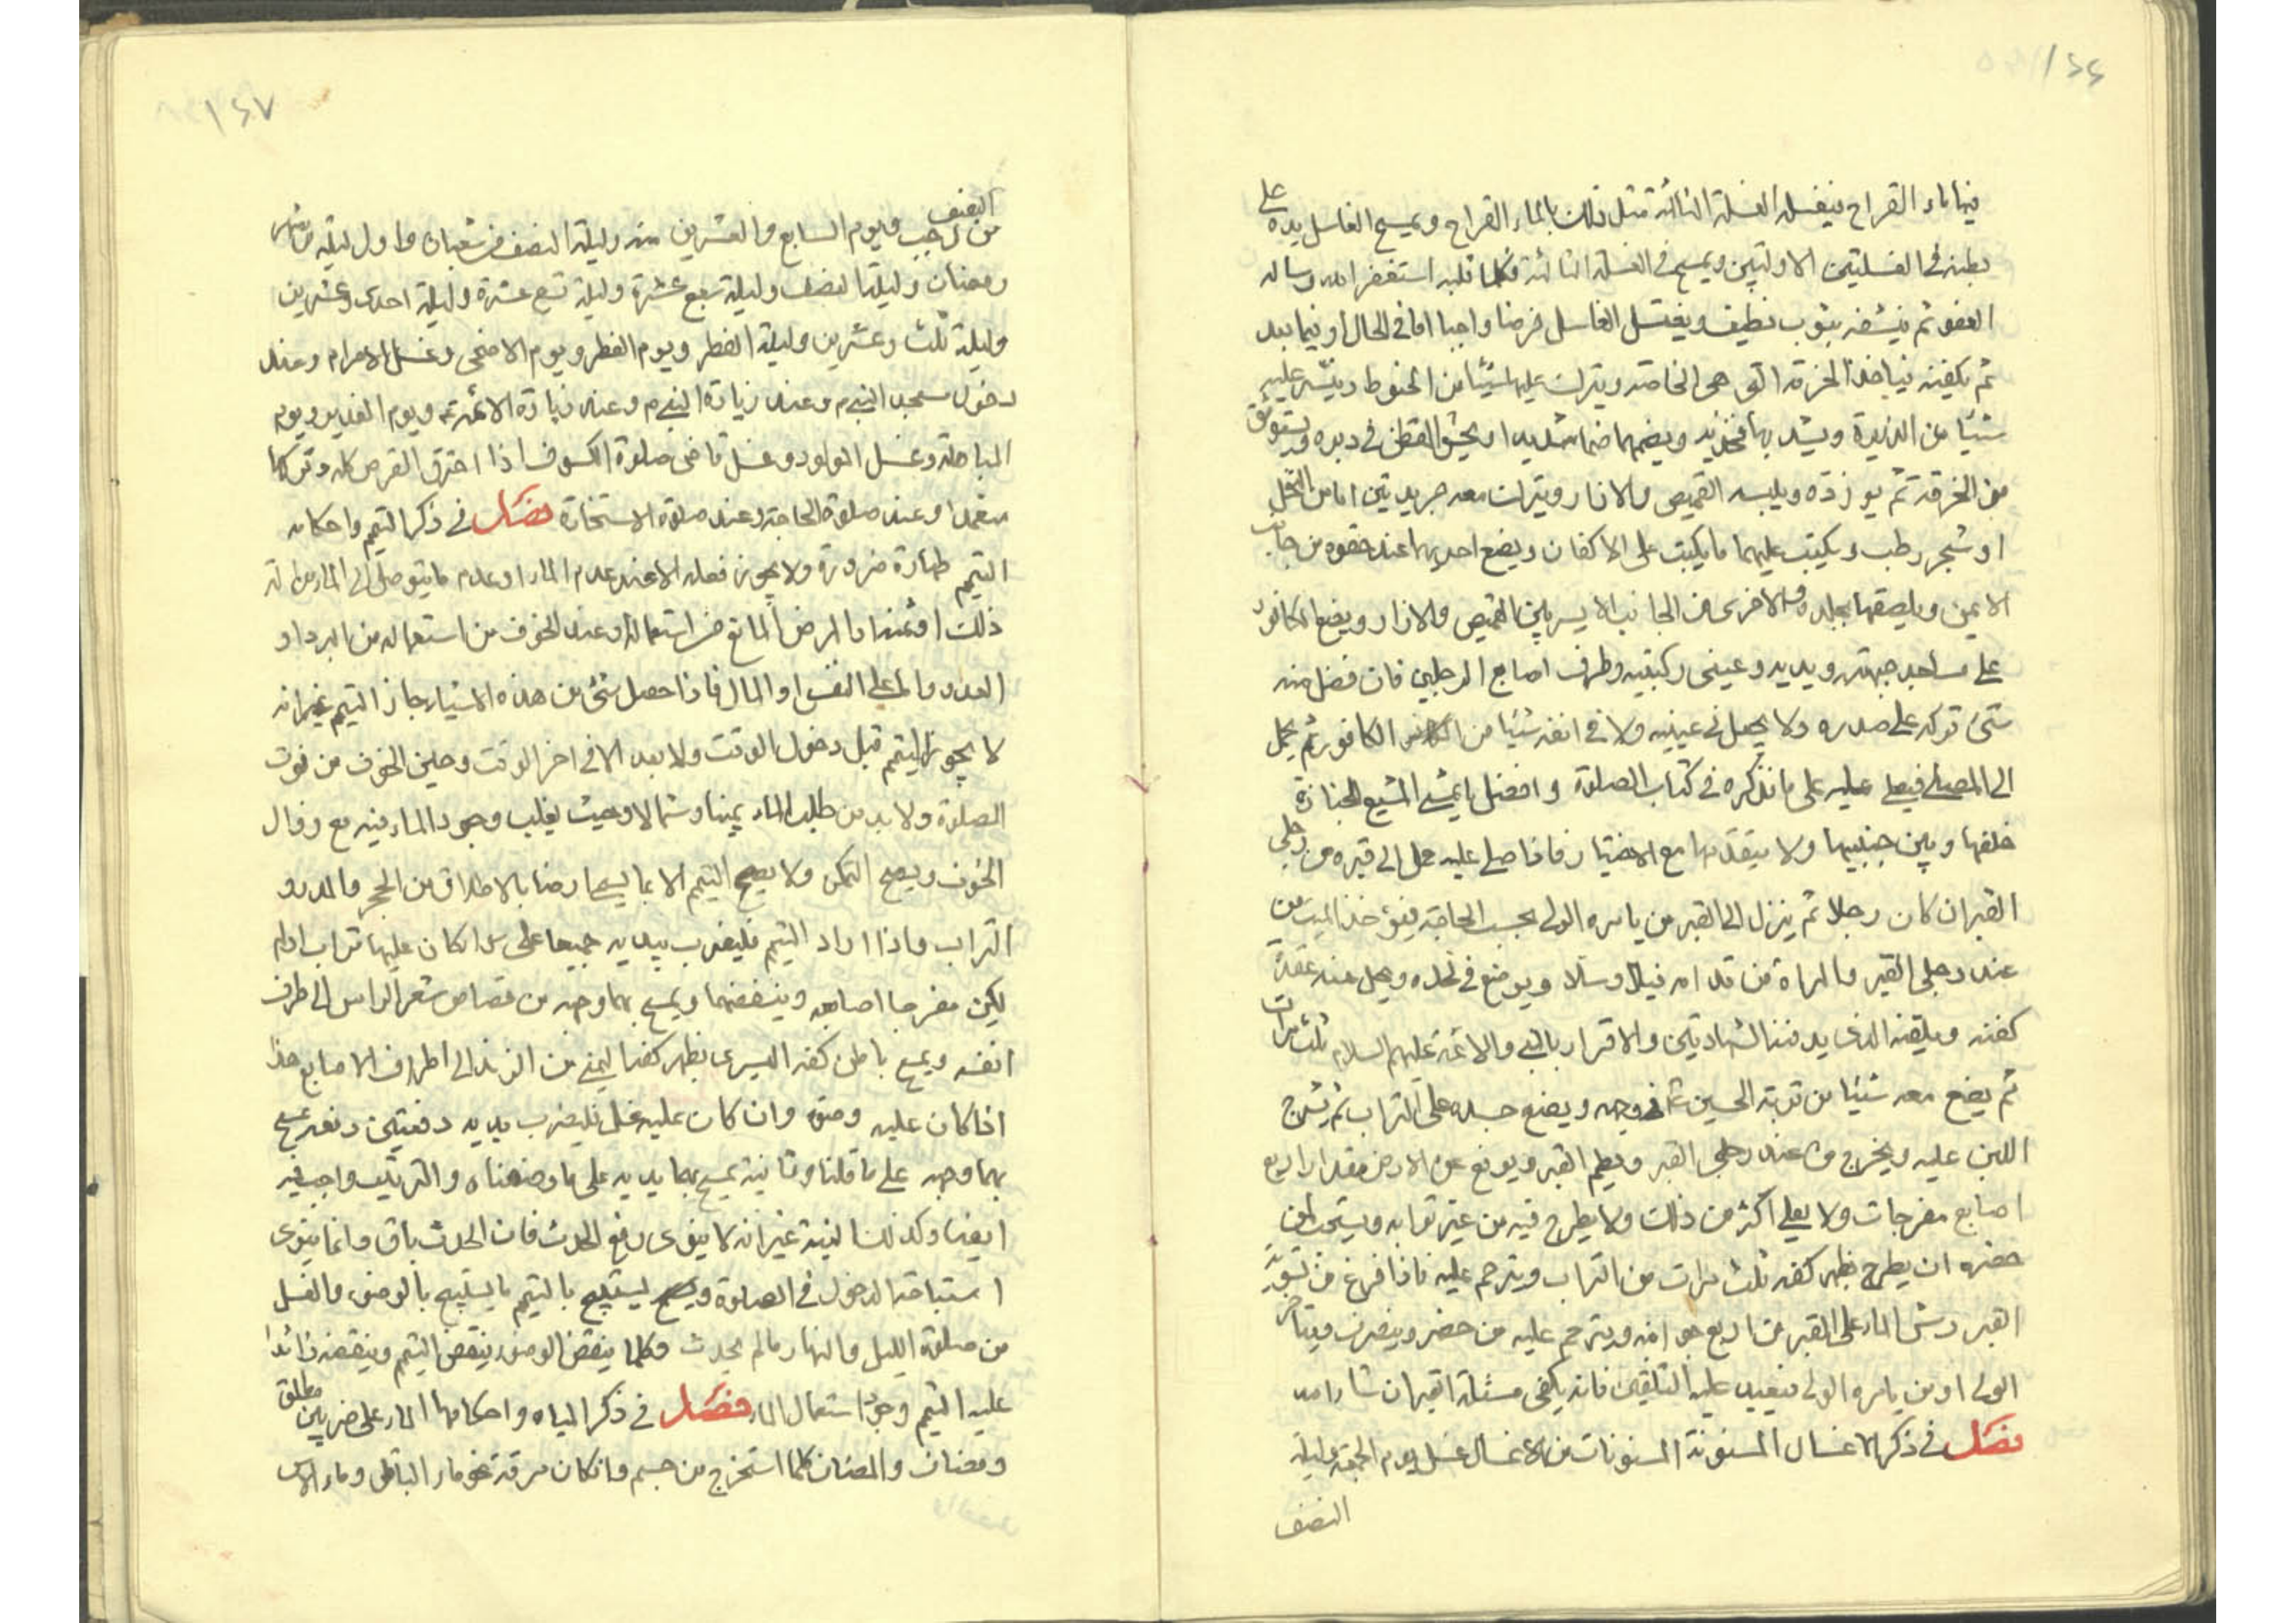 ١٤٦
فيها ماء القراح فيغسله الغسلة الثالثة مثل ذلك بالماء القراح ويمسح الغاسل يده على
بطنه في الغسلتين الاولتين ويمسح في الغسلة الثالثة وكلما قلبه استغفر الله وساله
العفو ثم ينشفه بثوب نظيف ويغتسل الغاسل فرضا واجبا اما في الحال او فيما بعد
ثم يكفنه فياخذ الخرقة التي هي الخامسة ويترك عليها شيئا من الحنوط وينثر عليه
شيئا من الذريرة ويشد بها فخذيه ويضمهما ضما شديدا ويحشو القطن في دبره ويستوثق
من الخرقة ثم يوزره ويلبسه القميص والازار ويترك معه جريدتين اما من النخل
او شجر رطب ويكتب عليهما ما يكتب على الاكفان ويضع احديهما عند حقوه من جانب
الايمن ويلصقها بجلده والاخرى من الجانب الايسر بين القميص والازار ويضع الكافور
على مساجد جبهته ويديه وعيني ركبتيه وطرف اصابع الرجلين فان فضل منه
شئ تركه على صدره ولا يجعل في عينيه ولا في انفه شيئا من الكافور ثم يحمل
الى المصلى فيصلى عليه على ما نذكره في كتاب الصلوة وافضل ما يمشي المشيع للجنازة
خلفها وبين جنبيها ولا يتقدمها مع الاختيار فاذا صلى عليه حمل الى قبره من رجلي
القبر ان كان رجلا ثم ينزل الى القبر من يامره الولي بحسب الحاجة فيؤخذ الميت من
عند رجلي القبر والمراة من قدامه فيسل سلا ويوضع في لحده ويحل عنه عقد
كفنه ويلقنه الذي يدفنه الشهادتين والاقرار بالنبي والائمة عليهم السلام ثلث مرات
ثم يضع معه شيئا من تربة الحسين في وجهه ويضع خده على التراب ثم يشرج
اللبن عليه ويخرج من عند رجلي القبر ويطم القبر ويرفع عن الارض مقدار اربع
اصابع مفرجات ولا يعلى اكثر من ذلك ولا يطرح فيه من غير ترابه ويستحب لمن
حضره ان يطرح بظهر كفه ثلث مرات من التراب ويترحم عليه فاذا فرغ من تسوية
القبر رش الماء على القبر من اربع جوانبه ويترحم عليه من حضر وينصرف ويتاخر
الولي او من يامره الولي فيعيد عليه التلقين فانه يكفى مسئلة القبر ان شاء الله
فصل في ذكر الاغسال المسنونة المسنونات من الاغسال غسل يوم الجمعة وليلة
النصف
١٤٧
النصف
من رجب ويوم السابع والعشرين منه وليلة النصف من شعبان واول ليلة من شهر
رمضان وليلة النصف وليلة سبع عشرة وليلة تسع عشرة وليلة احدى وعشرين
وليلة ثلث وعشرين وليلة الفطر ويوم الفطر ويوم الاضحى وغسل الاحرام وعند
دخول مسجد النبي م وعند زيارة النبي م وعند زيارة الائمة ع ويوم الغدير ويوم
المباهلة وغسل المولود وغسل قاضى صلوة الكسوف اذا احترق القرص كله وتركها
متعمدا وعند صلوة الحاجة وعند صلوة الاستخارة فصل في ذكر التيمم واحكامه
التيمم طهارة ضرورة ولا يجوز فعله الا عند عدم الماء او عدم ما يتوصل الى الماء من الة
ذلك او ثمنه او المرض المانع من استعماله وعند الخوف من استعماله من البرد او
العدو واما على النفس او المال فاذا حصل شئ من هذه الاشياء جاز التيمم غير انه
لا يجوز التيمم قبل دخول الوقت ولا بعده الا في اخر الوقت وحين الخوف من فوت
الصلوة ولا بد من طلب الماء يمينا وشمالا وحيث يغلب وجود الماء فيه مع زوال
الخوف ويصح التمكن ولا يصح التيمم الا بما يسمى ارضا بالاطلاق من الحجر والمدر و
التراب واذا اراد التيمم فليضرب بيديه جميعا على كان عليها تراب او لم
يكن مفرجا اصابعه وينفضهما ويمسح بهما وجهه من قصاص شعر الراس الى طرف
انفه ويمسح باطن كفه اليسرى بظهر كفه اليمنى من الزند الى اطراف الاصابع هذا
اذا كان عليه وضوء وان كان عليه غسل فليضرب بيديه دفعتين دفعة يمسح
بهما وجهه على ما قلنا وثانية يمسح بهما يديه على ما وصفناه والترتيب واجب فيه
ايضا وكذلك النية غير انه لا ينوى رفع الحدث فان الحدث باق وانما ينوى
استباحة الدخول في الصلوة ويستبيح بالتيمم ما يستبيح بالوضوء والغسل
من صلوة الليل والنهار مالم يحدث وكلما ينقض الوضوء ينقض التيمم وينقضه زائدا
عليه التيمم وجود استعمال الماء فصل في ذكر المياه واحكامها الماء على ضربين مطلق
ومضاف والمضاف كلما استخرج من جسم او كان مرقة نحو ماء الباقلى وماء الاس